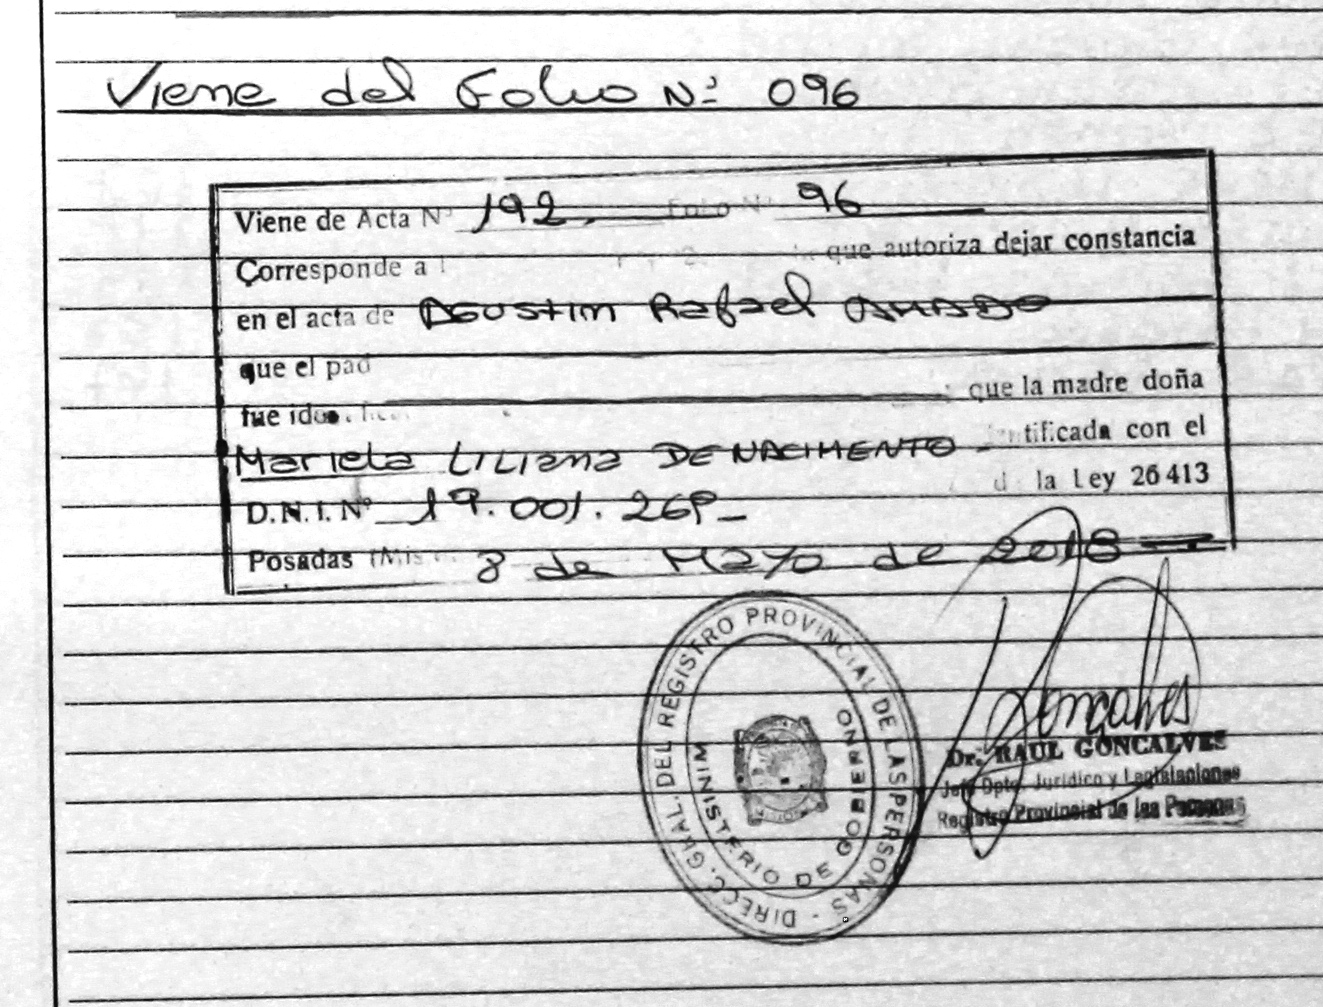 Viene del Folio Nº 096
Viene de Acta Nº 192. Folio Nº 96
Corresponde a que autoriza dejar constancia
en el acta de Agustin Rafael AMADO
que el pad
fue que la madre doña
Mariela Liliana DE NACIMENTO tificada con el
D.N.I. Nº 17.001.269 la Ley 26413
Posadas (Mis 8 de Mayo de 2018
DIRECC. GRAL. DEL REGISTRO PROVINCIAL DE LAS PERSONAS
MINISTERIO DE GOBIERNO
Goncalves
Dr. RAUL GONCALVES
Jefe Dpto. Jurídico y Legislaciones
Registro Provincial de las Personas